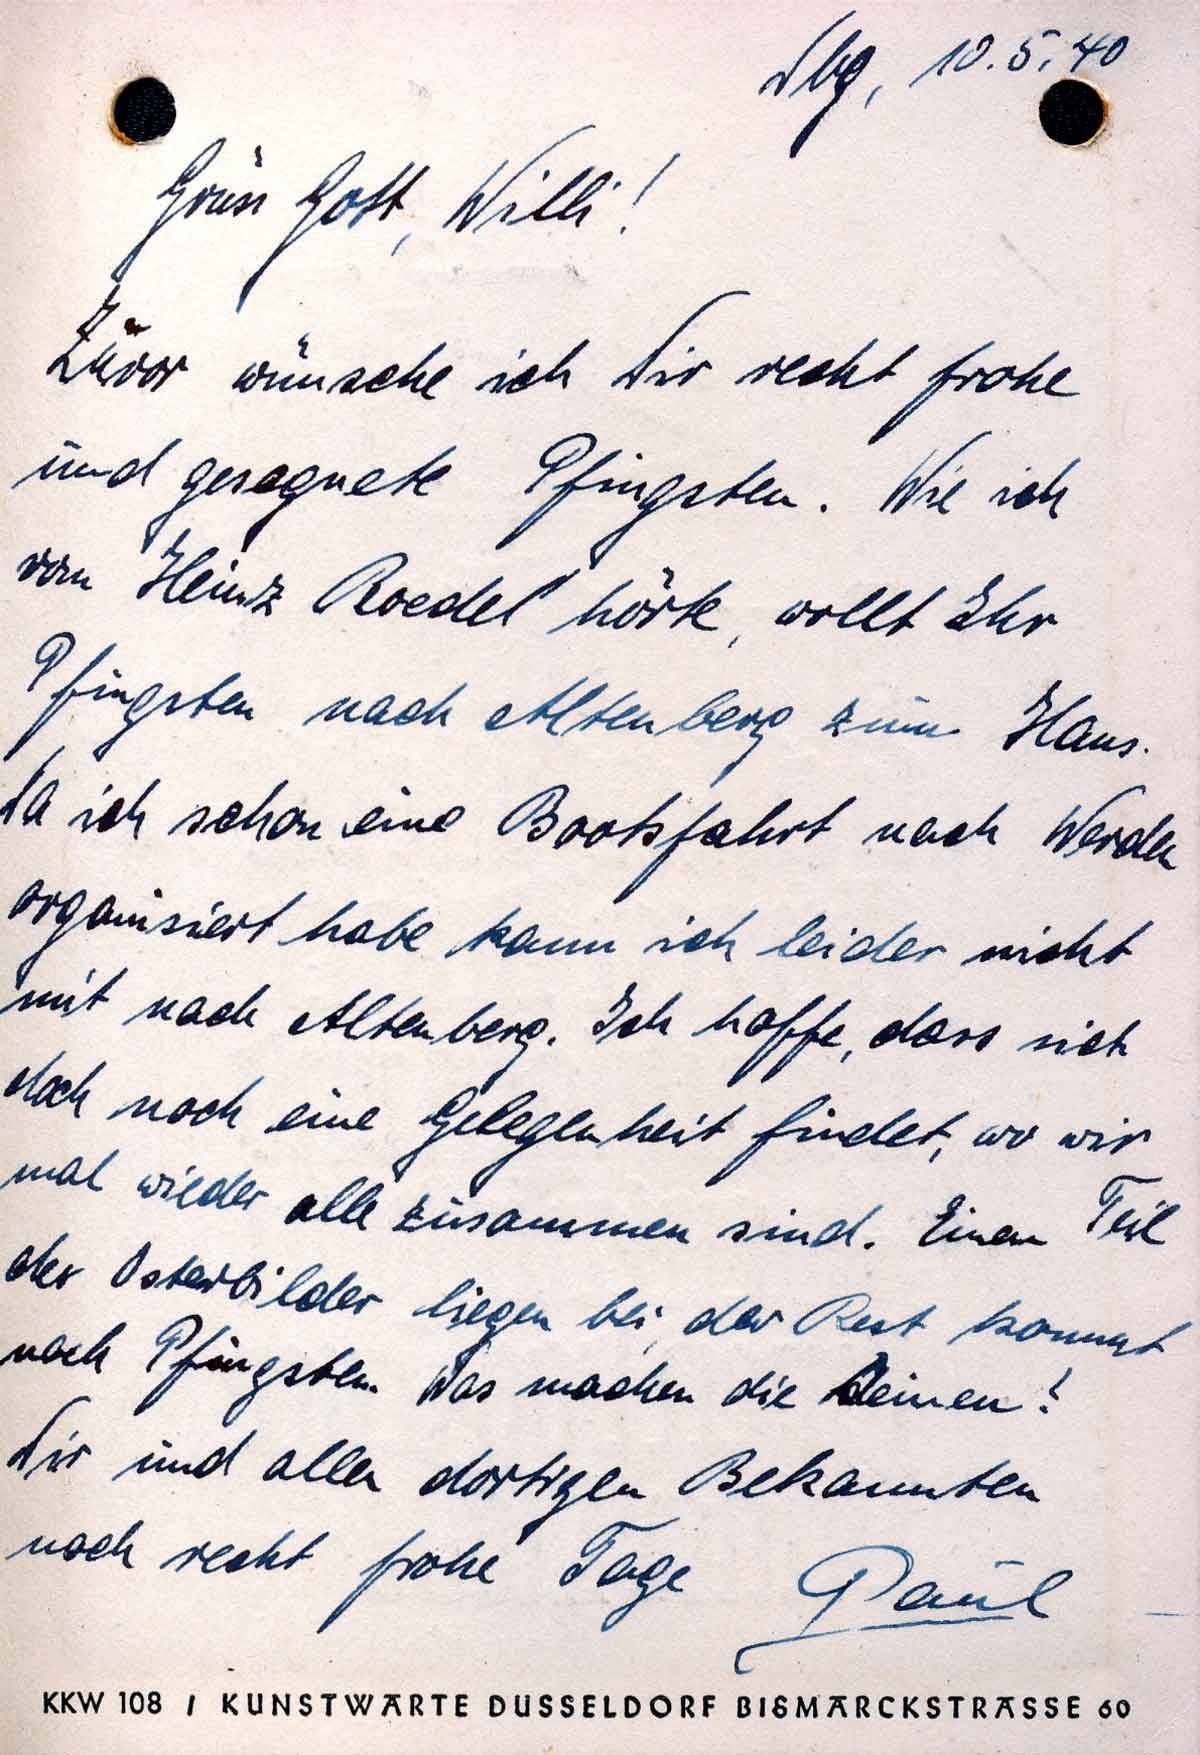 Dbg, 10.5.40
Grüss Gott, Willi!
Zuvor wünsche ich Dir recht frohe
und gesegnete Pfingsten. Wie ich
von Heinz Roedel hörte, wollt Ihr
Pfingsten nach Altenberg zum Haus.
Da ich schon eine Bootsfahrt nach Werden
organisiert habe kann ich leider nicht
mit nach Altenberg. Ich hoffe, dass sich
doch noch eine Gelegenheit findet, wo wir
mal wieder alle zusammen sind. Einen Teil
der Osterbilder liegen bei, der Rest kommt
nach Pfingsten. Was machen die Deinen?
Dir und allen dortigen Bekannten
noch recht frohe Tage Paul
KKW 108 / KUNSTWARTE DÜSSELDORF BISMARCKSTRASSE 60